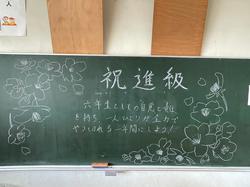 祝進級
六年生としての自覚と責任
を持ち、一人ひとりが全力で
やりきれる一年間にしよう！